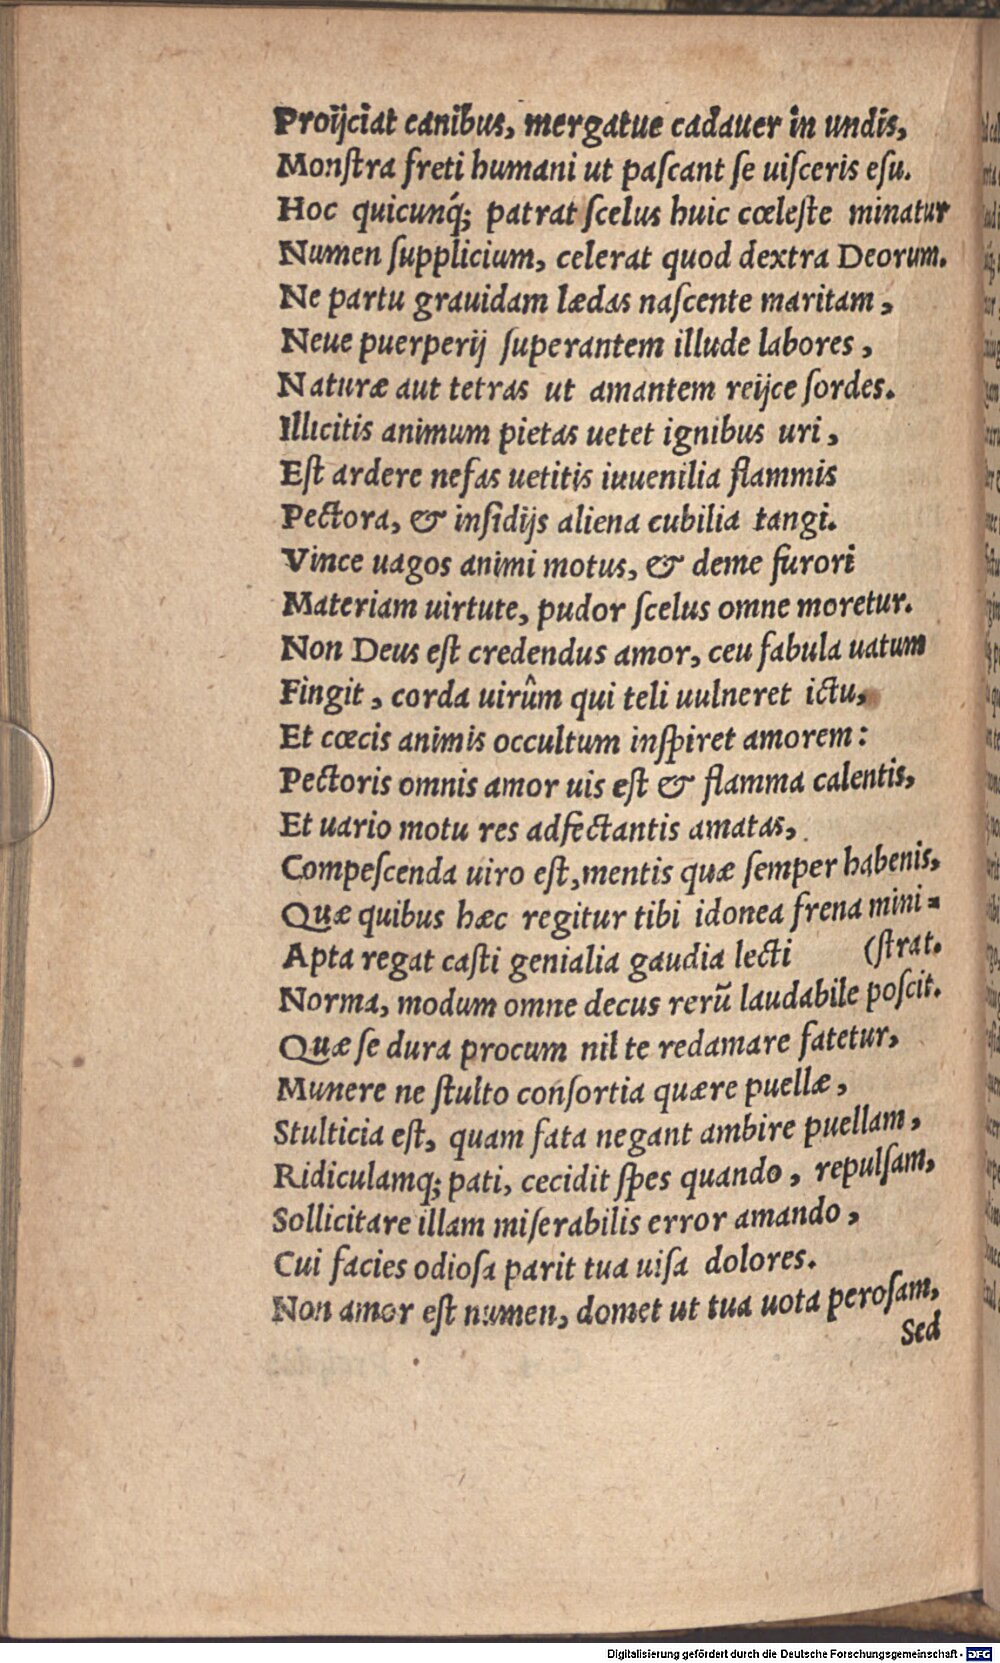 Proijciat canibus, mergatue cadauer in undis,
Monſtra freti humani ut paſcant ſe uiſceris eſu.
Hoc quicunq́; patrat ſcelus huic cœleſte minatur
Numen ſupplicium, celerat quod dextra Deorum.
Ne partu grauidam lædas naſcente maritam,
Neue puerperij ſuperantem illude labores,
Naturæ aut tetras ut amantem reijce ſordes.
Illicitis animum pietas uetet ignibus uri,
Eſt ardere nefas uetitis iuuenilia flammis
Pectora, & inſidijs aliena cubilia tangi.
Vince uagos animi motus, & deme furori
Materiam uirtute, pudor ſcelus omne moretur.
Non Deus eſt credendus amor, ceu fabula uatum
Fingit, corda uirûm qui teli uulneret ictu,
Et cœcis animis occultum inſpiret amorem:
Pectoris omnis amor uis eſt & flamma calentis,
Et uario motu res adfectantis amatas,
Compeſcenda uiro eſt, mentis quæ ſemper habenis,
Quæ quibus hæc regitur tibi idonea frena mini=
Apta regat caſti genialia gaudia lecti (ſtrat.
Norma, modum omne decus rerū laudabile poſcit.
Quæ ſe dura procum nil te redamare fatetur,
Munere ne ſtulto conſortia quære puellæ,
Stulticia eſt, quam fata negant ambire puellam,
Ridiculamq; pati, cecidit ſpes quando, repulſam,
Sollicitare illam miſerabilis error amando,
Cui facies odioſa parit tua uiſa dolores.
Non amor eſt numen, domet ut tua uota peroſam,
Sed
Digitalisierung gefördert durch die Deutsche Forschungsgemeinschaft - DFG